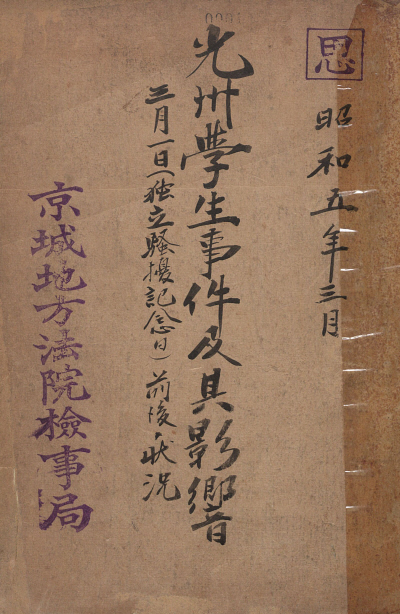 思
昭和五年三月
光州學生事件及其影響
三月一日(独立騷擾記念日)前後ノ狀況
京城地方法院檢事局